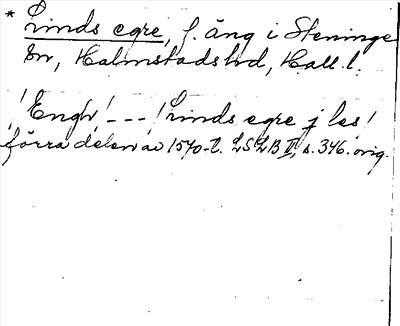 * Linds egre, f. äng i Steninge
sn, Halmstads hd, Hall. l.
! Engh! --- ! Linds egre j les!
förra delen av 1570-t. LSLB II, s. 346. orig.